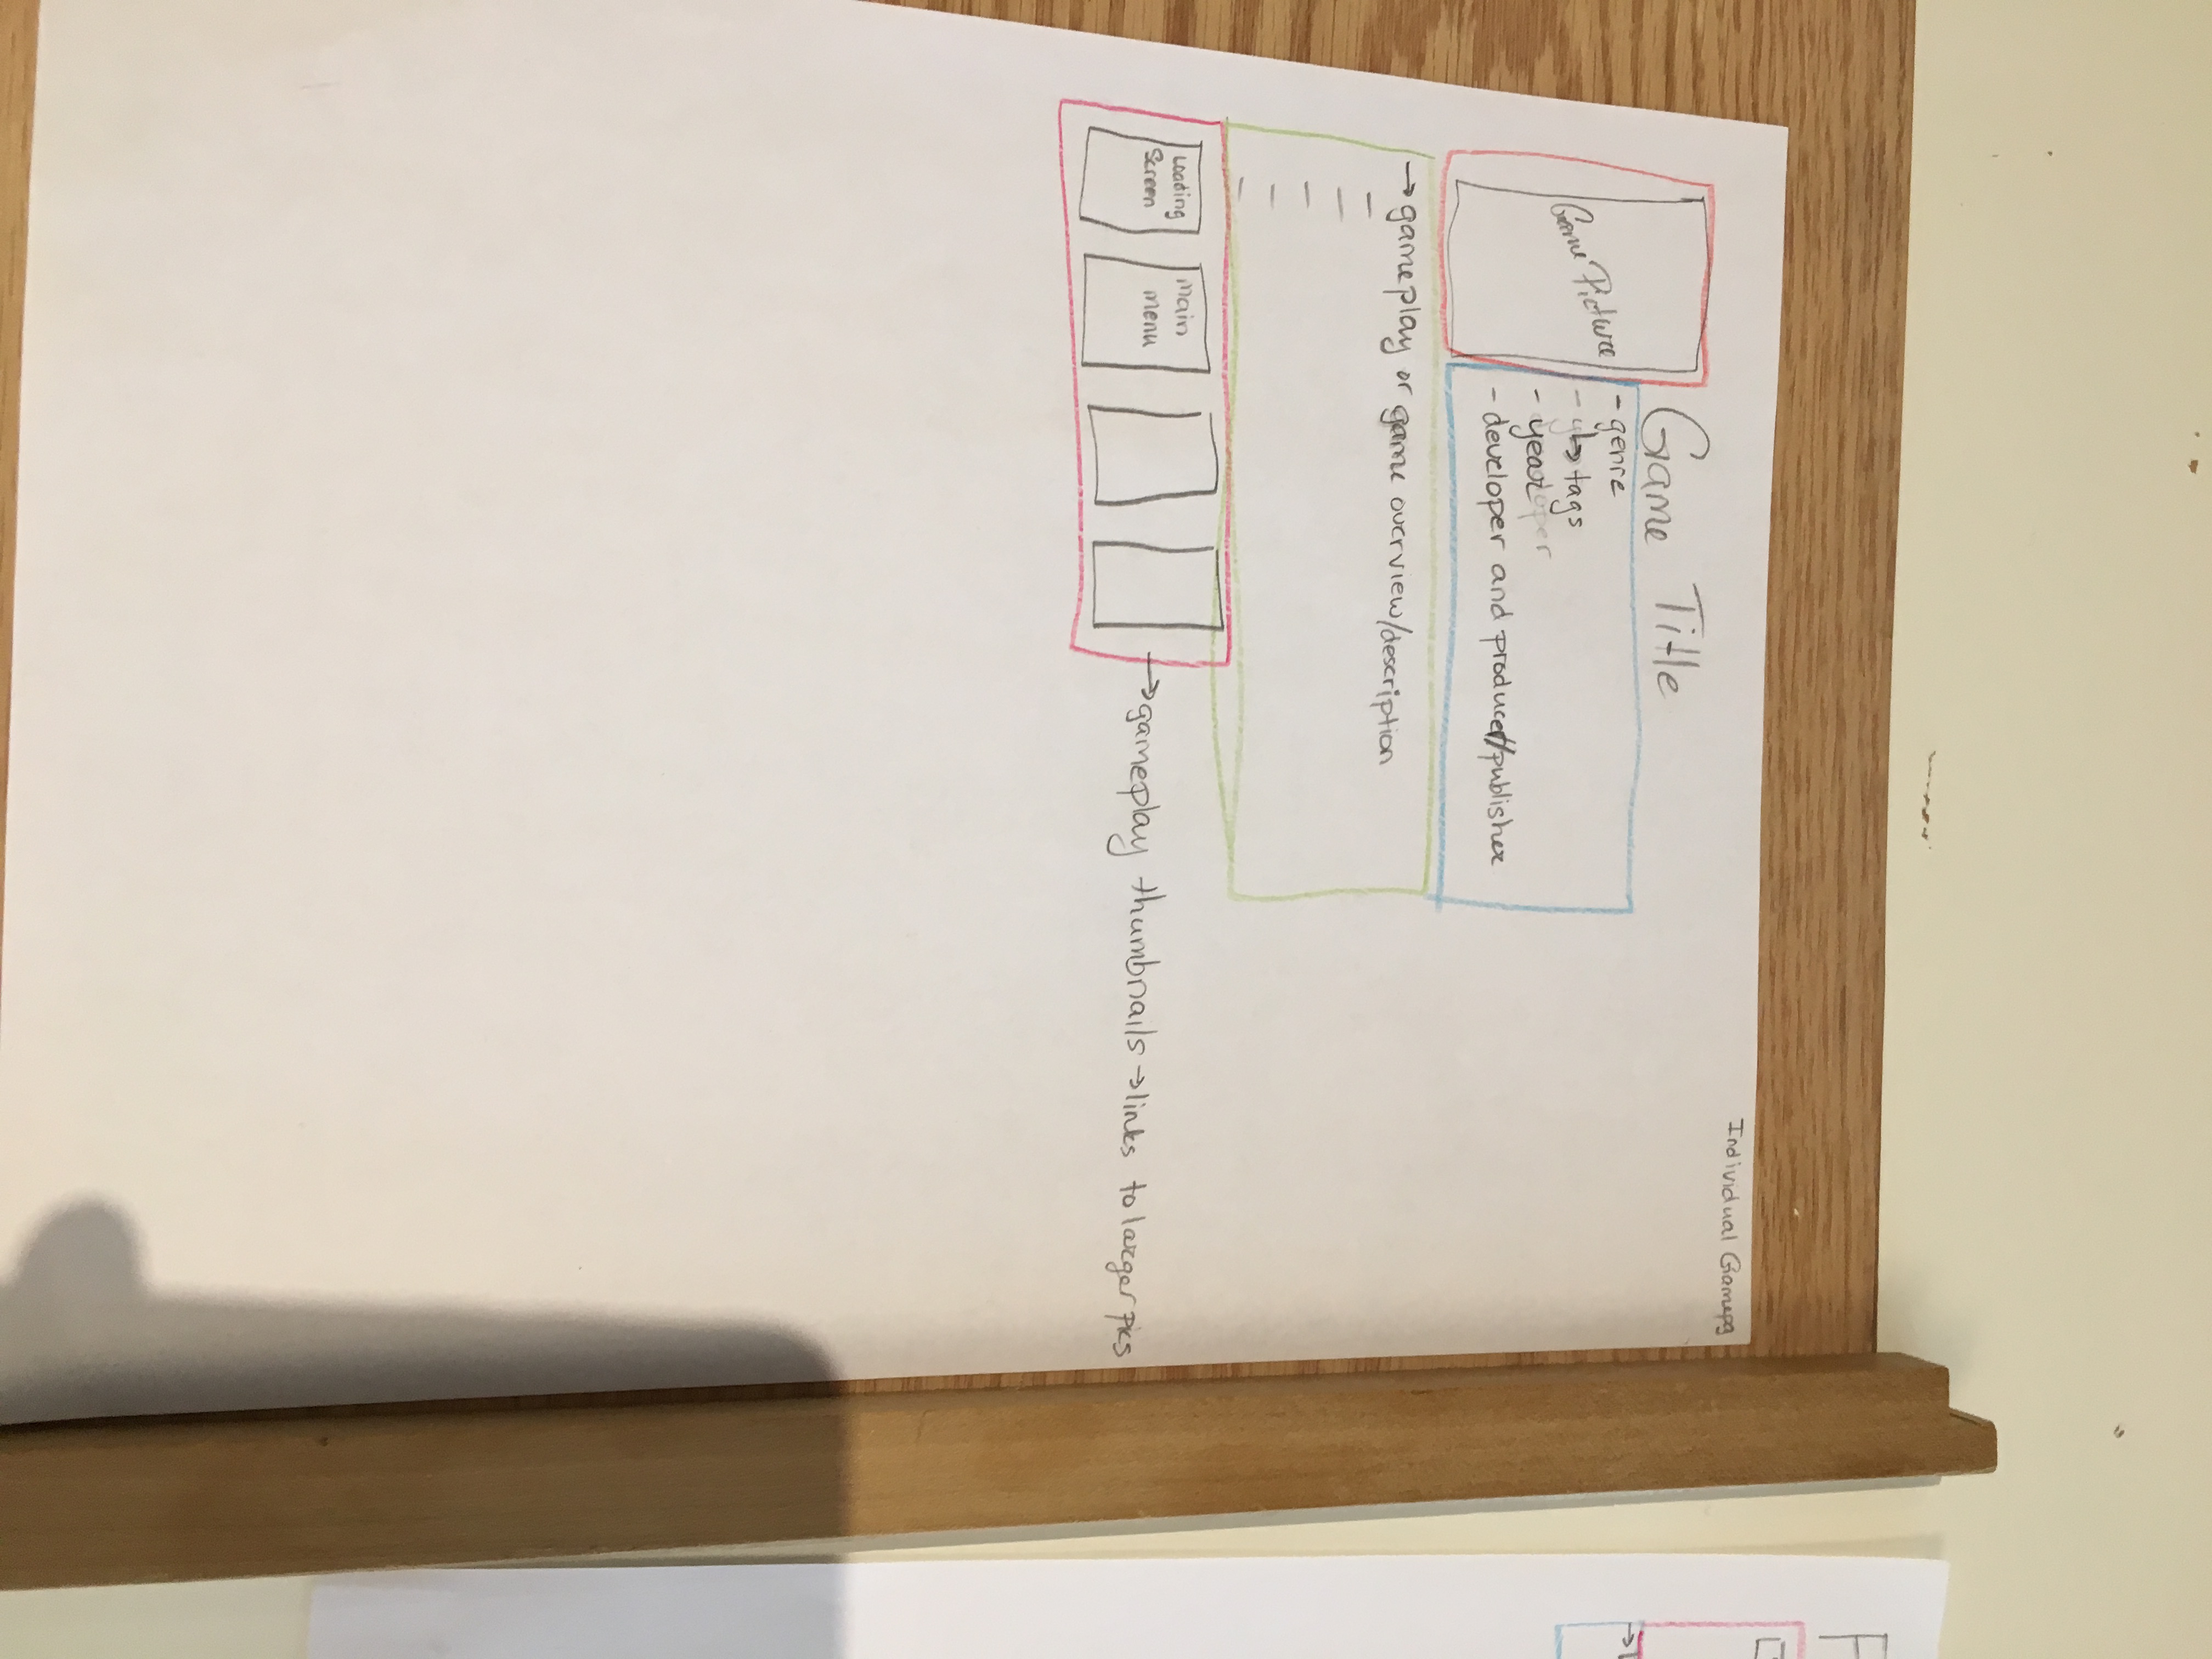 Individual Gamepg
Game Title
Game Picture
- genre
- ↳ tags
- year
- developer and producer/publisher
→ gameplay or game overview/description
-
-
-
-
-
Loading
Screen
Main
menu
→ gameplay thumbnails → links to larger pics